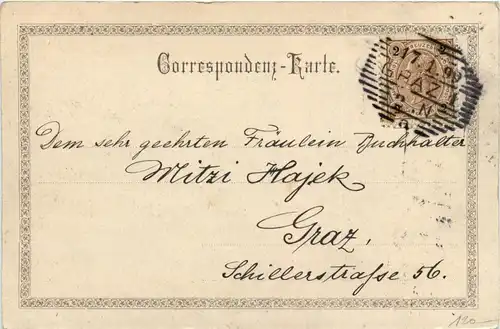 Correspondenz-Karte.
2 2
7.1.99
GRAZ 1
Dem sehr geehrten Fräulein Buchhalter
Mitzi Hajek
Graz,
Schillerstraſse 56.
120